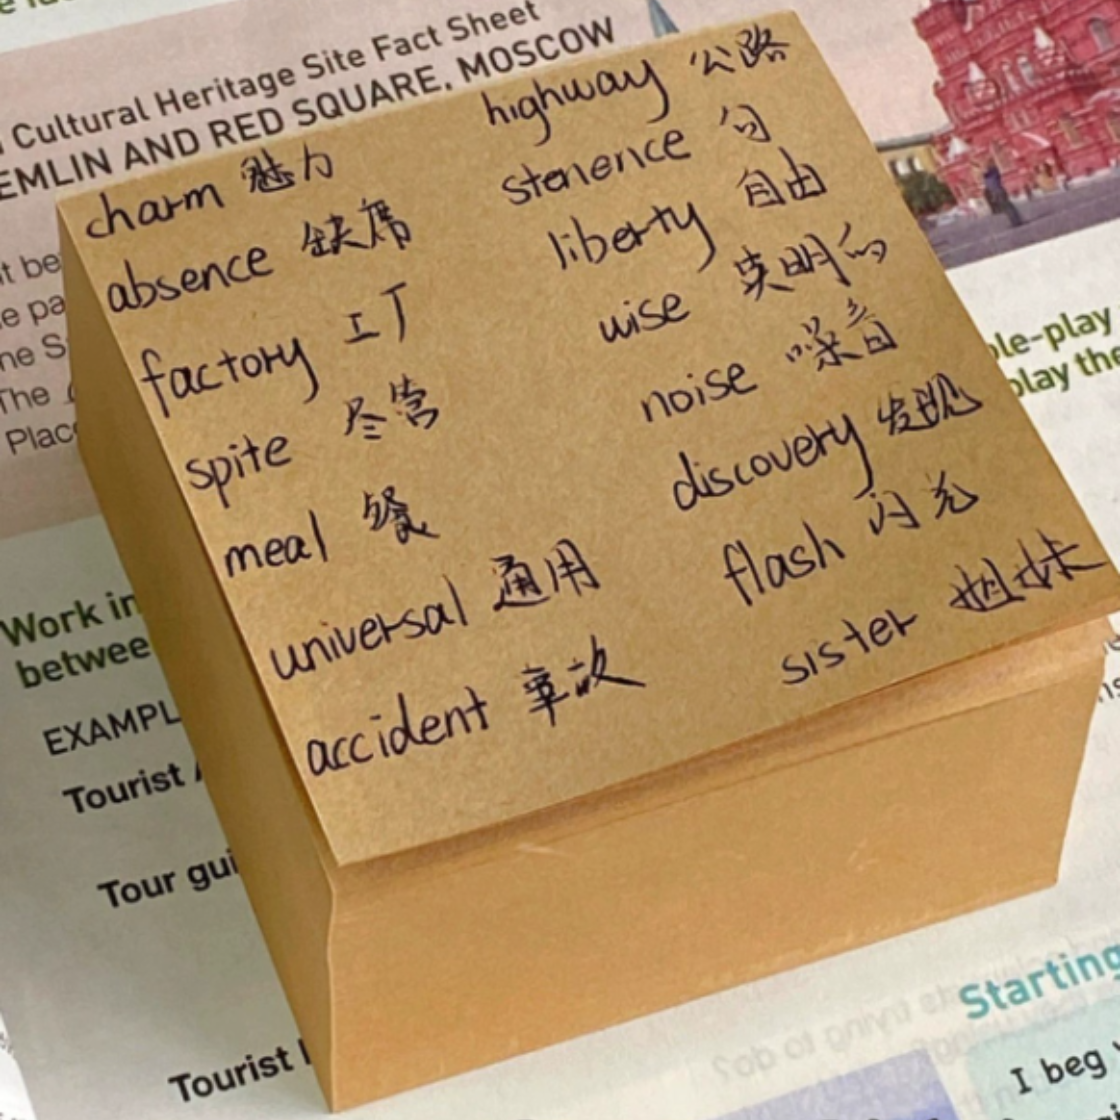 Cultural Heritage Site Fact Sheet
EMLIN AND RED SQUARE, MOSCOW
charm 魅力
absence 缺席
factory 工厂
spite 尽管
meal 餐
universal 通用
accident 事故
highway 公路
stenence 句
liberty 自由
wise 英明的
noise 噪音
discovery 发现
flash 闪光
sister 姐妹
t be
e pa
ne S
The
Plac
ole-play
play the
Work in
betwee
EXAMPL
Tourist
Tour gui
Tourist
Starting
I beg